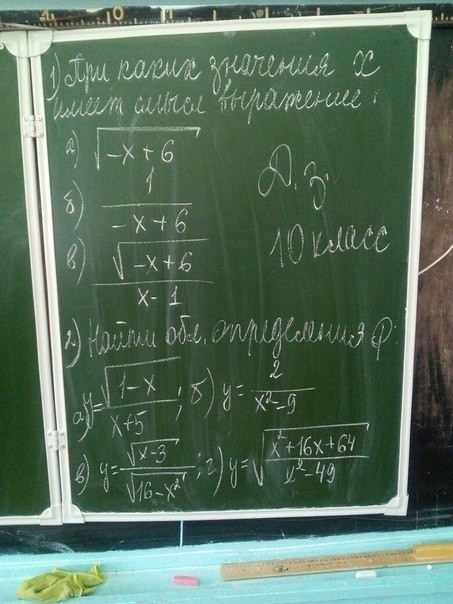 1) При каких значения х
имеет смысл выражение:
а) √(-x+6)
б) 1/(-x+6)
в) √(-x+6)/(x-1)
Д.З.
10 класс
2) Найти обл. определения ф:
а) y=√(1-x)/(x+5); б) y=2/(x²-9)
в) y=√(x-3)/√(16-x²); г) y=√((x²+16x+64)/(x²-49))